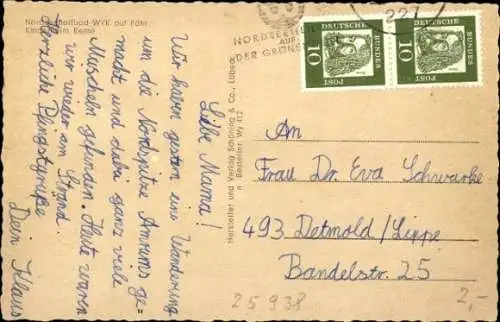 Nordseeheilbad-WYK auf Föhr
Kinderheim
Liebe Mama!
Wir haben gestern eine Wanderung
um die Nordspitze Amrums ge-
macht und dabei ganz viele
Muscheln gefunden. Heute waren
wir wieder am Strand.
Herzliche Pfingstgrüße
Dein Klaus
Hersteller und Verlag Schöning & Co., Lübeck
Bestellnr. Wy 412
NORDSEEHEIL
AUF
DER GRÜNEN
DEUTSCHE
BUNDES
POST
10
DEUTSCHE
BUNDES
POST
10
An
Frau Dr. Eva Schwarke
493 Detmold/Lippe
Bandelstr. 25
25938
2,-